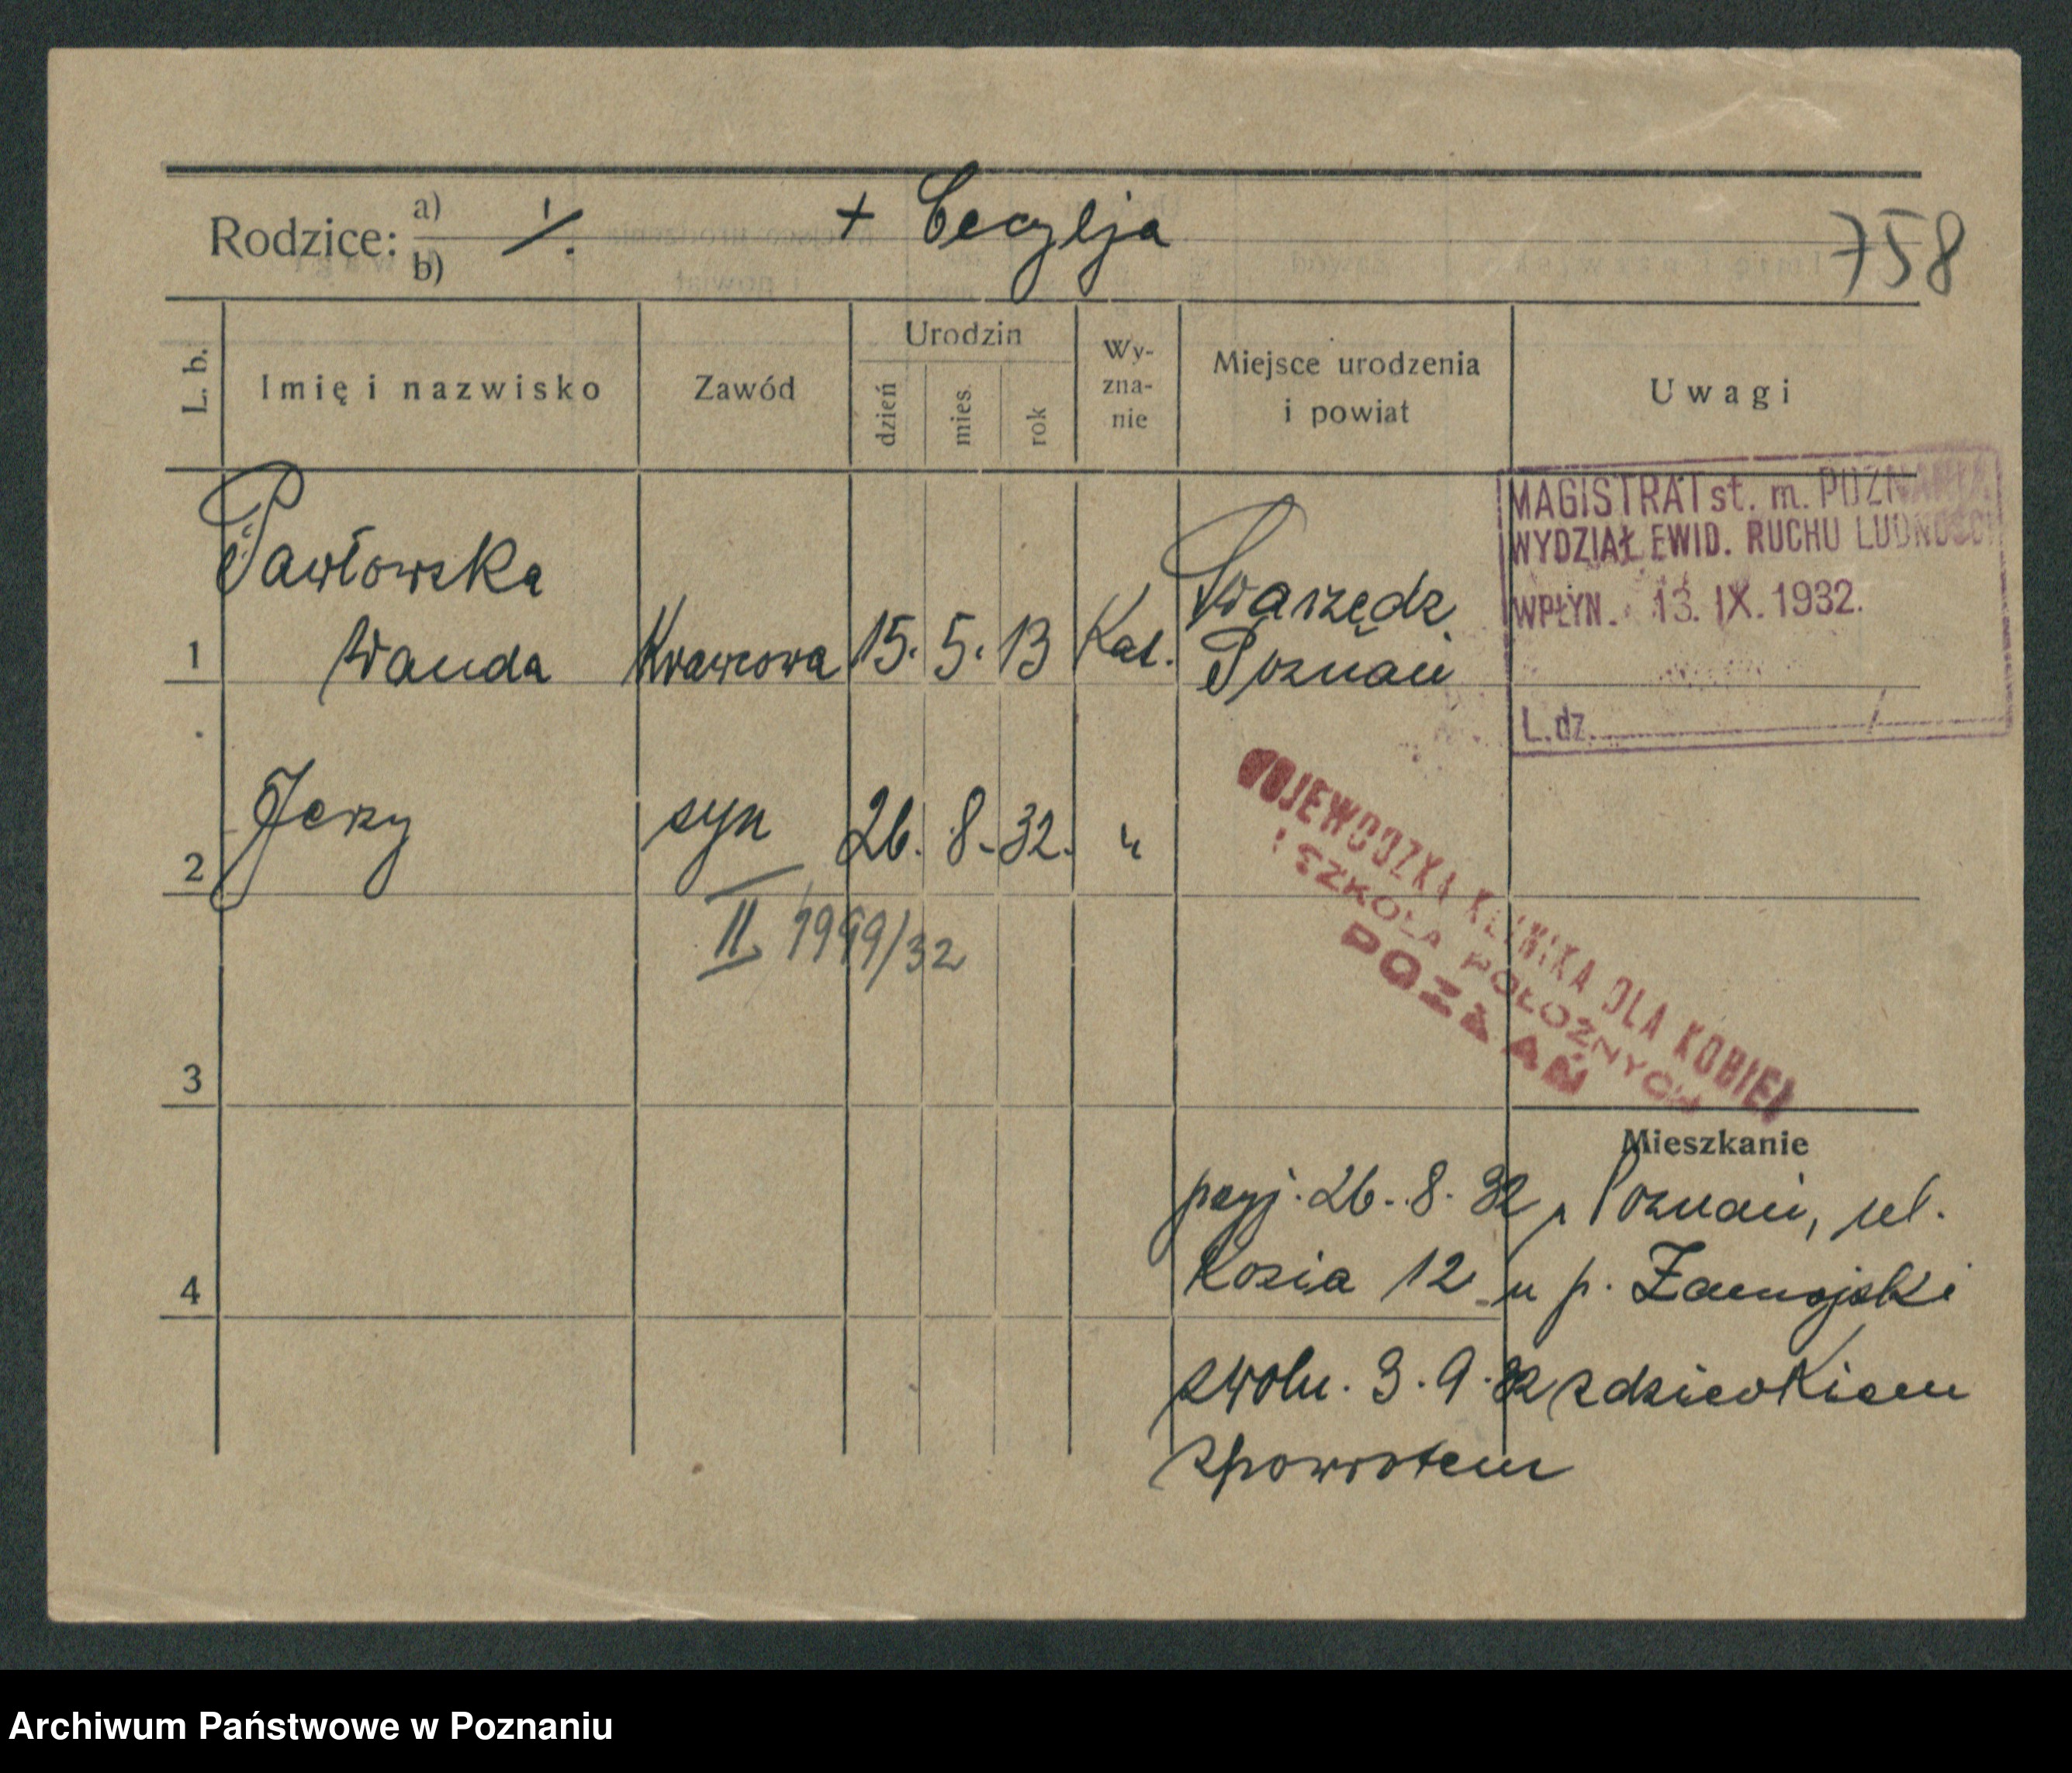 Rodzice: a) b) ·/. + Cecylja
758
L. b. Imię i nazwisko Zawód Urodzin dzień mies. rok Wy-zna-nie Miejsce urodzenia i powiat Uwagi
MAGISTRAT st. m. POZNANIA
WYDZIAŁ EWID. RUCHU LUDNOŚCI
WPŁYN. 13. IX. 1932.
L.dz. /
Pawłowska
1 Wanda Krawcowa 15. 5. 13 Kat. Swarzędz
Poznań
2 Jerzy syn 26. 8. 32. "
II 1999/32
WOJEWÓDZKA KLINIKA DLA KOBIET
I SZKOŁA POŁOŻNYCH
POZNAŃ
3
Mieszkanie
przyj. 26. 8. 32 z Poznań, ul.
4 Kozia 12 u p. Zamojski
zwoln. 3. 9. 32 z dzieckiem
zpowrotem
Archiwum Państwowe w Poznaniu